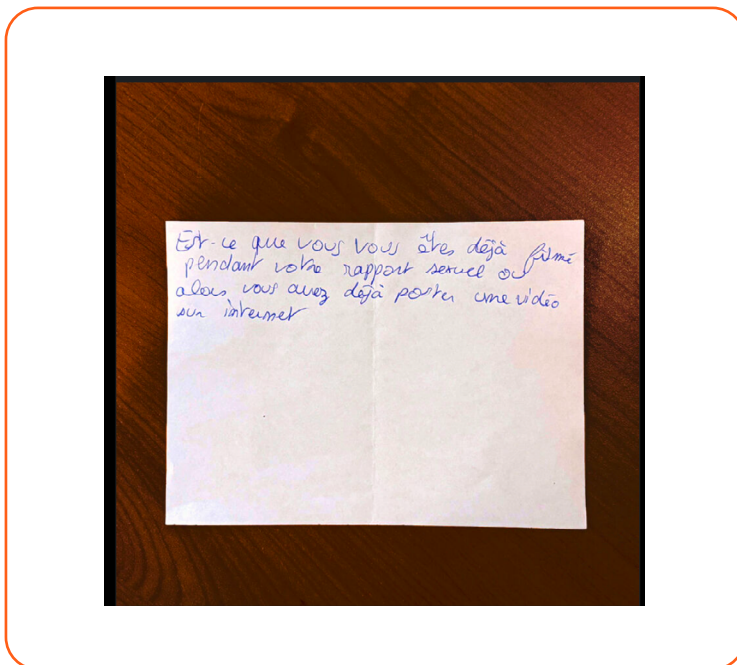 Est-ce que vous vous êtes déjà filmé
pendant votre rapport sexuel ou
alors vous avez déjà poster une vidéo
sur internet